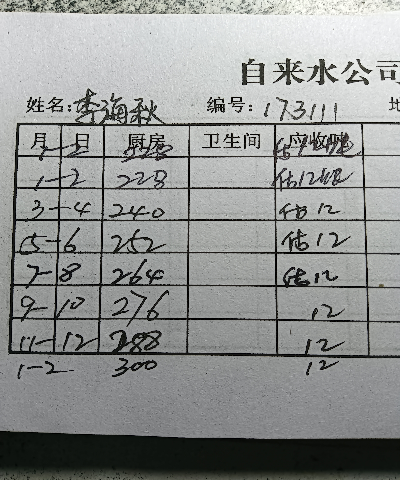 自来水公司
姓名:李海秋 编号:173111
月 日 厨房 卫生间 应收
1-2 228 估12
3-4 240 估12
5-6 252 估12
7-8 264 估12
9-10 276 12
11-12 288 12
1-2 300 12